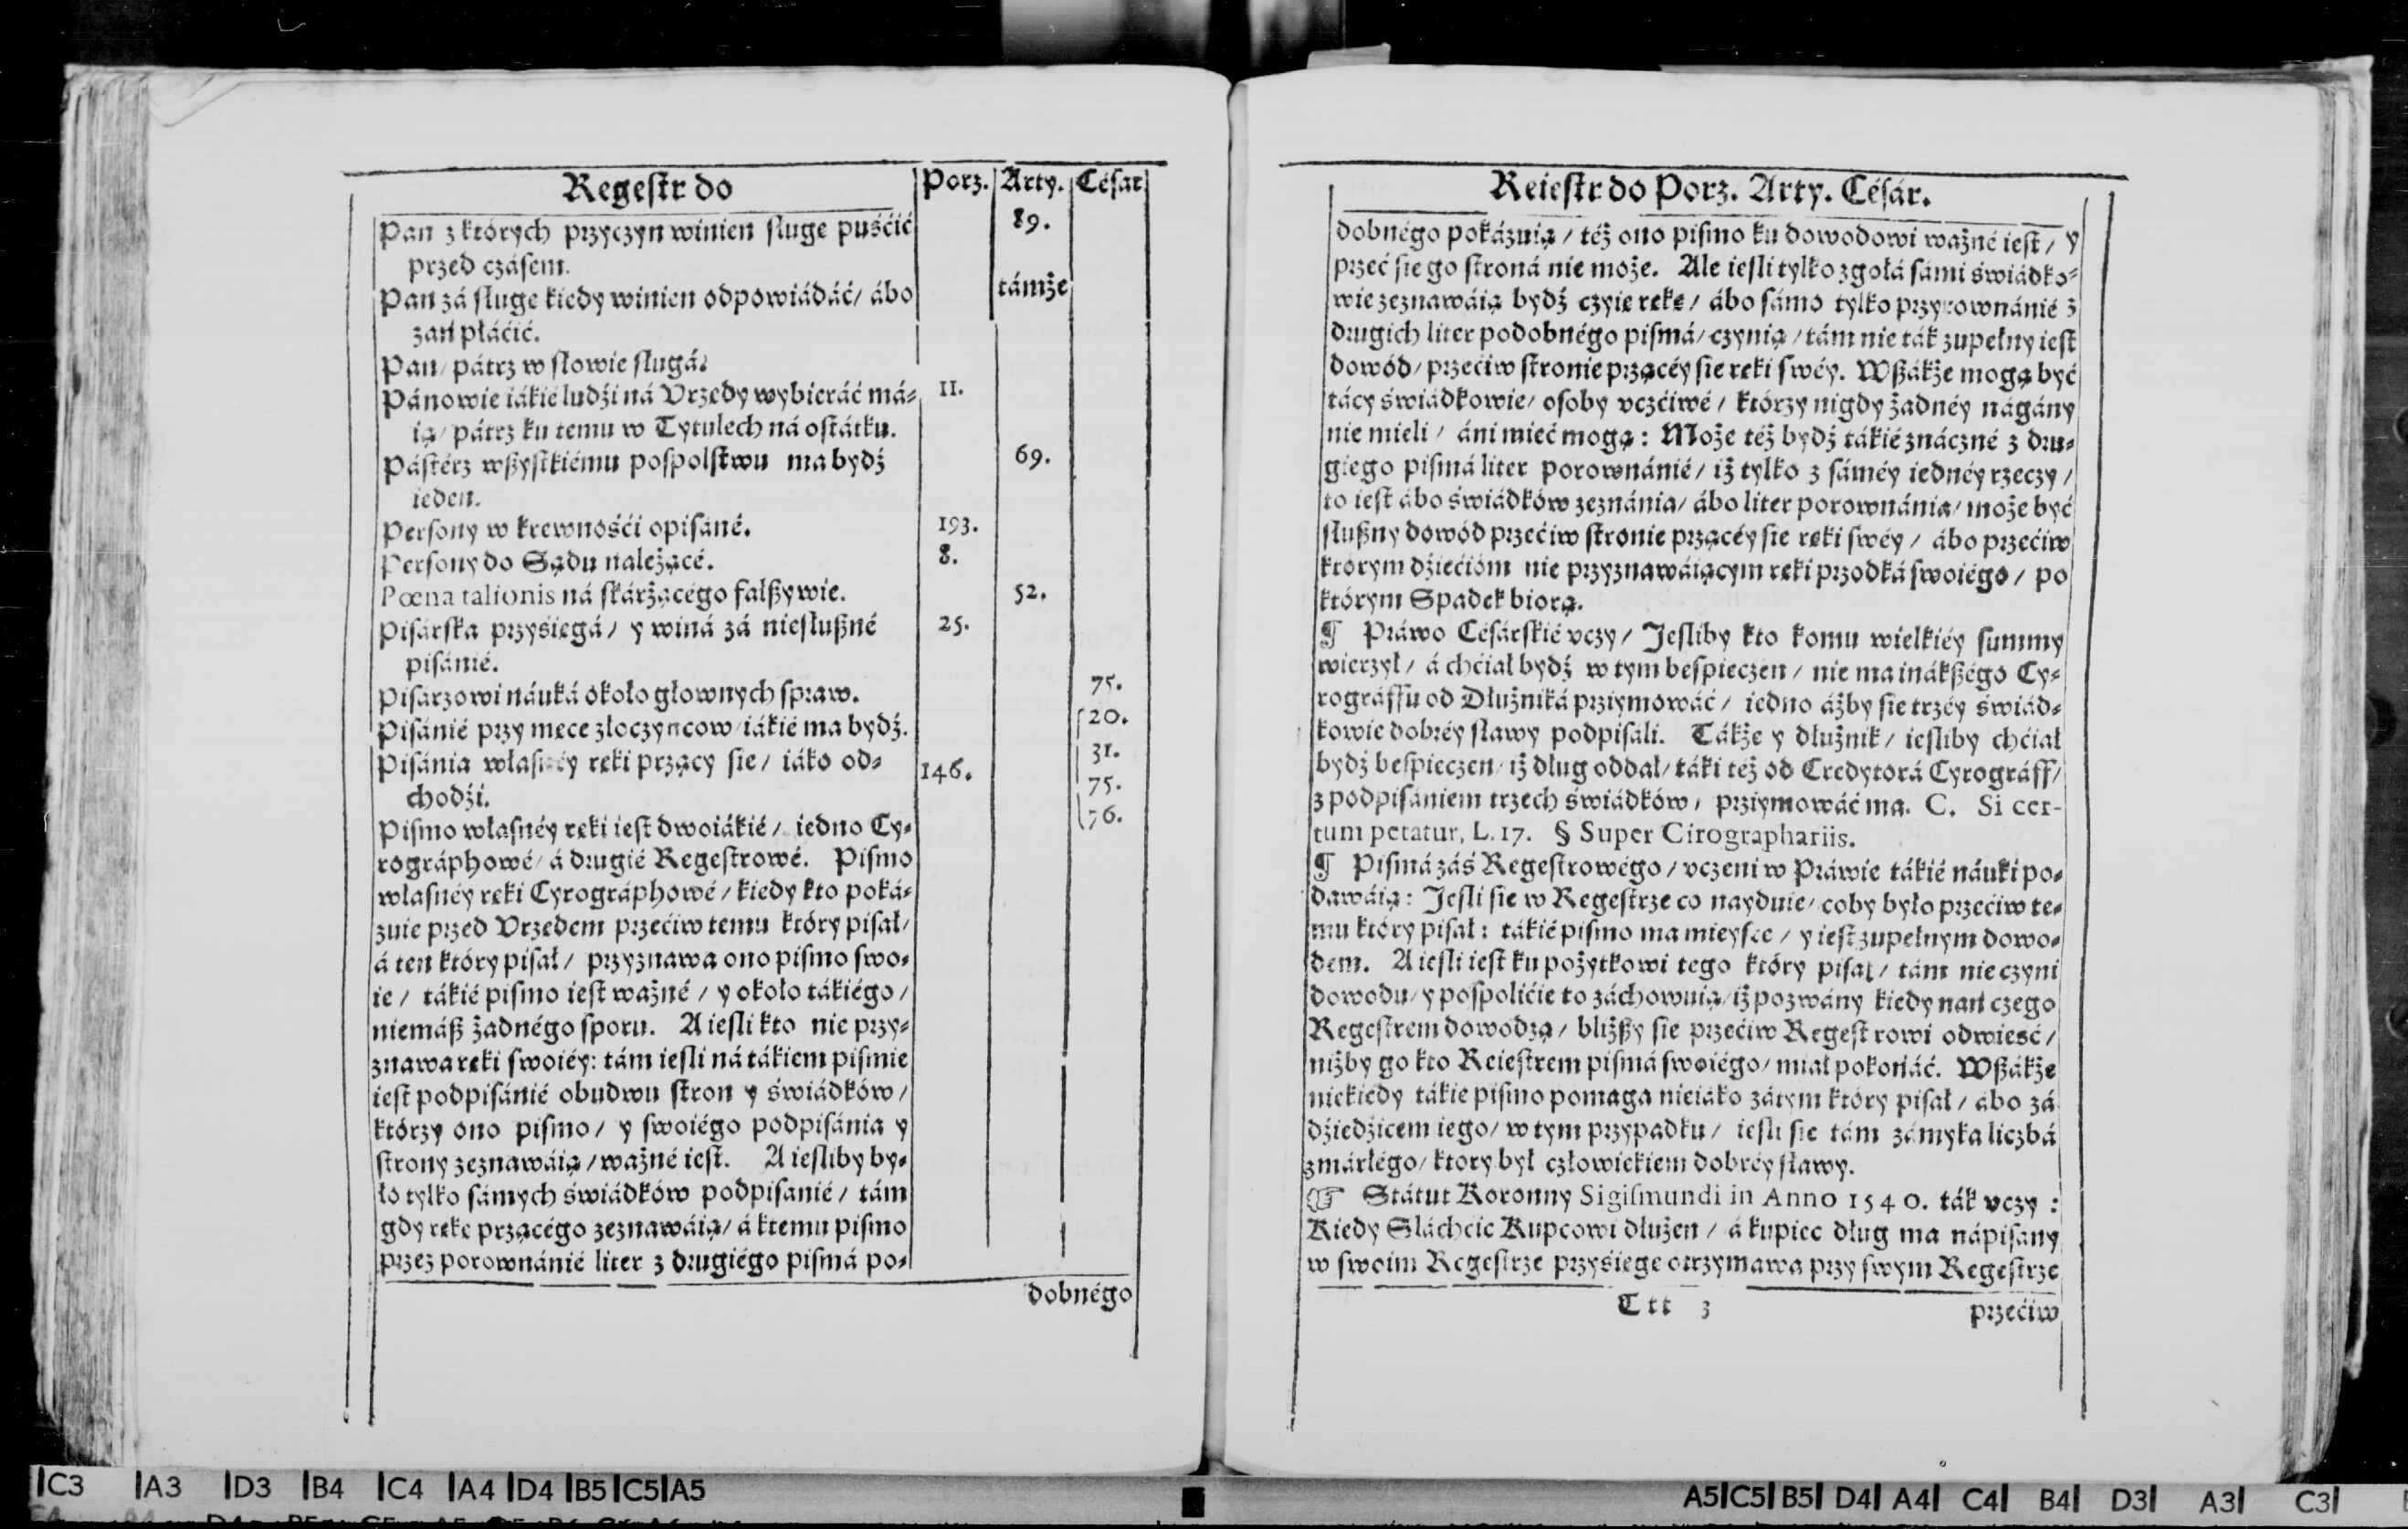 Regestr do Porz. Arty. Césár
Pan z których przyczyn winien sluge puśćić 89.
przed czásem.
Pan zá sluge kiedy winien odpowiádáć/ ábo támże
zań płáćić.
Pan/ pátrz w slowie slugá.
Pánowie iákié ludźi ná Vrzędy wybieráć má- 11.
ią/ pátrz ku temu w Tytulech ná ostátku.
Pástérz wßystkiému pospolstwu ma bydź 69.
ieden.
Persony w krewnośći opisáné. 193.
Persony do Sądu należącé. 8.
Pœna talionis ná skárżącégo falßywie. 52.
Pisárska przysięgá/ y winá zá niesłußné 25.
pisánié.
Pisárzowi náuká około głownych spraw. 75.
Pisánié przy męce złoczyńcow/ iákié ma bydź. 20.
Pisánia własnéy ręki przący sie/ iáko od- 146. 31.
chodźi. 75.
Pismo własnéy ręki iest dwoiákié/ iedno Cy- 76.
rográphowé/ á drugié Regestrowé. Pismo
własnéy ręki Cyrográphowé/ kiedy kto poká-
zuie przed Vrzędem przećiw temu który pisał/
á ten który pisał/ przyznawa ono pismo swo-
ie/ tákié pismo iest ważné/ y około tákiégo/
niemáß żadnégo sporu. A iesli kto nie przy-
znawa ręki swoiéy: tám iesli ná tákiem pismie
iest podpisánié obudwu stron y świádków/
którzy ono pismo/ y swoiégo podpisánia y
strony zeznawáią/ ważné iest. A iesliby by-
ło tylko sámych świádków podpisanié/ tám
gdy rękę przącégo zeznawáią/ á ktemu pismo
przez porownánié liter z drugiégo pismá po-
dobnégo
Reiestr do Porz. Arty. Césár.
dobnégo pokázuią/ téż ono pismo ku dowodowi ważné iest/ y
przeć sie go stroná nie może. Ale iesli tylko zgołá sámi świádko-
wie zeznawáią bydź czyię rękę/ ábo sámo tylko przyrownánié z
drugich liter podobnégo pismá/ czynią/ tám nie ták zupełny iest
dowód/ przećiw stronie przącéy sie ręki swéy. Wßákże mogą być
tácy świádkowie/ osoby vczćiwé/ którzy nigdy żadnéy nágány
nie mieli/ áni mieć mogą: Może téż bydź tákié znáczné z dru-
giego pismá liter porownánié/ iż tylko z sáméy iednéy rzeczy/
to iest ábo świádków zeznánia/ ábo liter porownánia/ może być
słußny dowód przećiw stronie przącéy sie ręki swéy/ ábo przećiw
którym dźiećióm nie przyznawáiącym ręki przodká swoiégo/ po
którym Spadek biorą.
¶ Práwo Césárskié vczy/ Jesliby kto komu wielkiéy summy
wierzył/ á chćiał bydź w tym bespieczen/ nie ma inákßégo Cy-
rográffu od Dłużniká prziymowáć/ iedno áżby sie trzéy świád-
kowie dobréy sławy podpisali. Tákże y dłużnik/ iesliby chćiał
bydź bespieczen/ iż dług oddał/ táki téż od Credytorá Cyrográff/
z podpisániem trzech świádków/ prziymowáć ma. C. Si cer-
tum petatur, L. 17. § Super Cirographariis.
¶ Pismá záś Regestrowégo/ vczeni w Práwie tákié náuki po-
dawáią: Jesli sie w Regestrze co nayduie/ coby było przećiw te-
mu który pisał: tákié pismo ma mieysce/ y iest zupełnym dowo-
dem. A iesli iest ku pożytkowi tego który pisał/ tám nie czyni
dowodu/ y pospolićie to záchowuią/ iż pozwány kiedy nań czego
Regestrem dowodzą/ bliżßy sie przećiw Regestrowi odwiesć/
niżby go kto Reiestrem pismá swoiégo/ miał pokonáć. Wßákże
niekiedy tákie pismo pomaga nieiáko zátym który pisał/ ábo zá
dźiedźicem iego/ w tym przypadku/ iesli sie tám zámyka liczbá
zmárłégo/ ktory był człowiekiem dobréy sławy.
☞ Státut Koronny Sigismundi in Anno 1540. ták vczy:
Kiedy Sláchćic Kupcowi dłużen/ á kupiec dług ma nápisany
w swoim Regestrze przysięgę otrzymawa przy swym Regestrze
Ttt 3 przećiw
C3 A3 D3 B4 C4 A4 D4 B5 C5 A5
A5 C5 B5 D4 A4 C4 B4 D3 A3 C3